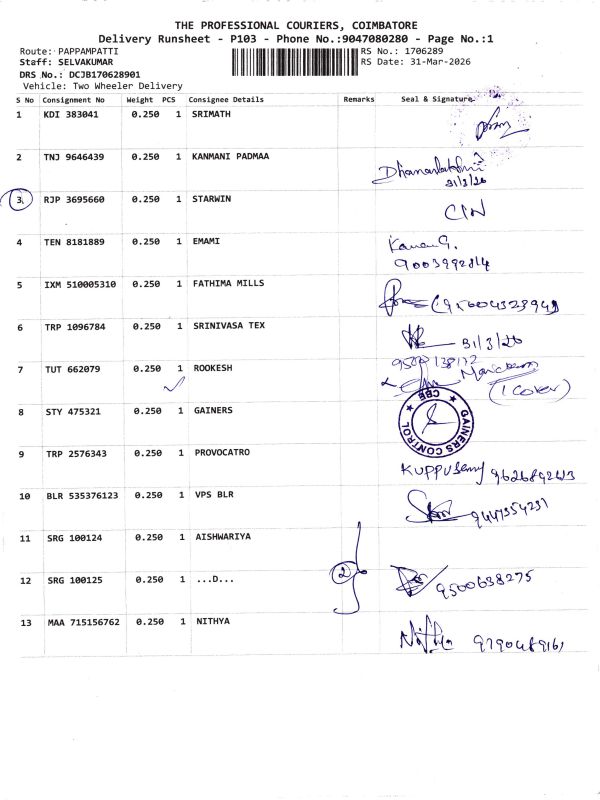 THE PROFESSIONAL COURIERS, COIMBATORE
Delivery Runsheet - P103 - Phone No.:9047080280 - Page No.:1
Route: PAPPAMPATTI
RS No.: 1706289
Staff: SELVAKUMAR
RS Date: 31-Mar-2026
DRS No.: DCJB170628901
Vehicle: Two Wheeler Delivery
S No Consignment No Weight PCS Consignee Details Remarks Seal & Signature
1 KDI 383041 0.250 1 SRIMATH
2 TNJ 9646439 0.250 1 KANMANI PADMAA
Dhanalakshmi
31/3/26
3 RJP 3695660 0.250 1 STARWIN
4 TEN 8181889 0.250 1 EMAMI
9003992814
5 IXM 510005310 0.250 1 FATHIMA MILLS
6 TRP 1096784 0.250 1 SRINIVASA TEX
31/3/26
7 TUT 662079 0.250 1 ROOKESH
(1 Cover)
8 STY 475321 0.250 1 GAINERS
GAINERS CONTROL CBE
9 TRP 2576343 0.250 1 PROVOCATRO
Kuppusamy
10 BLR 535376123 0.250 1 VPS BLR
11 SRG 100124 0.250 1 AISHWARIYA
12 SRG 100125 0.250 1 ...D...
2 9500638275
13 MAA 715156762 0.250 1 NITHYA
Nithya